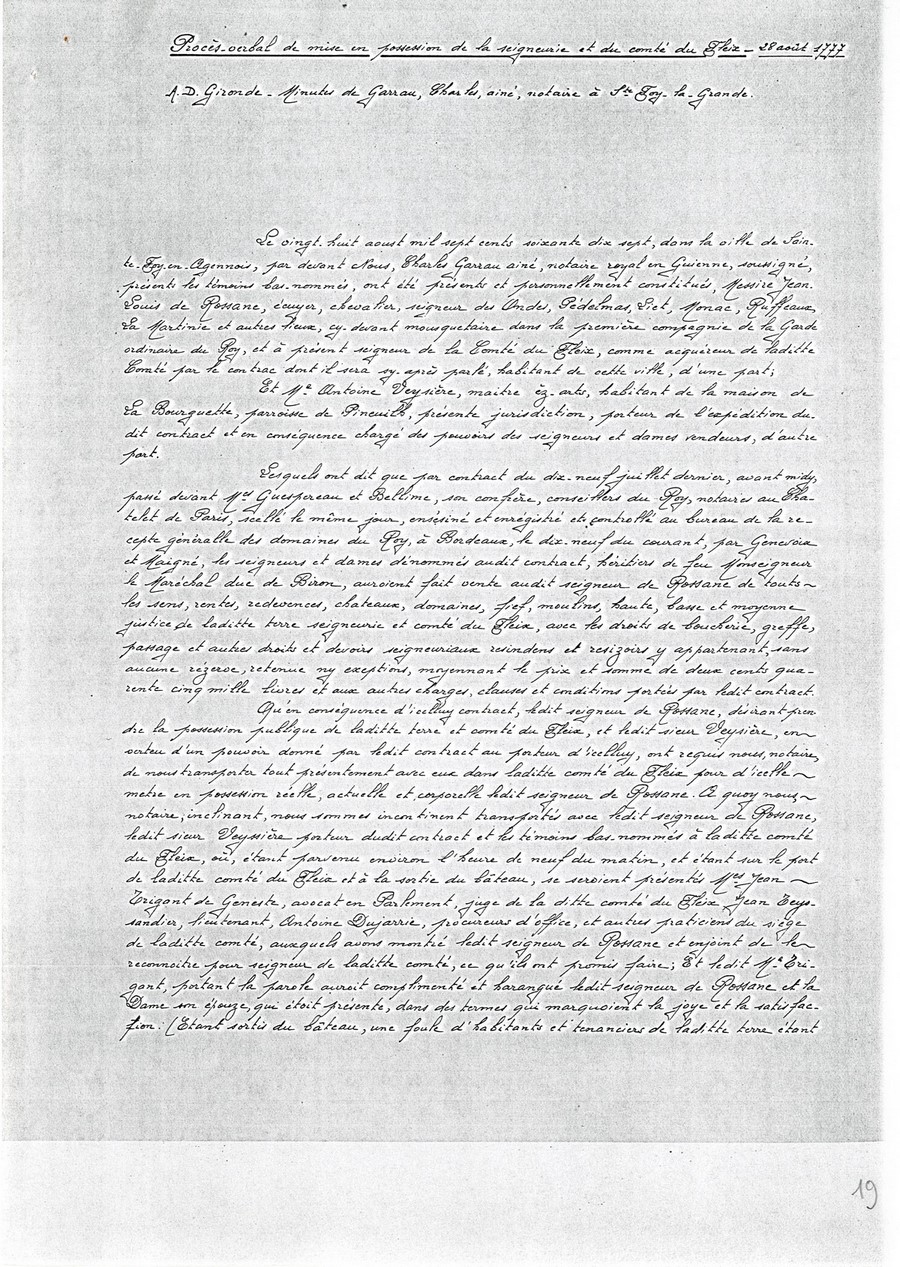 Procès-verbal de mise en possession de la seigneurie et du comté du Fleix - 28 août 1777
A.D. Gironde - Minutes de Garrau, Charles, ainé, notaire à Ste Foy-la-Grande.
Le vingt-huit aoust mil sept cents soixante dix sept, dans la ville de Sain-
te-Foy-en-Agennois, par devant Nous, Charles Garrau ainé, notaire royal en Guienne, soussigné,
présents les témoins bas-nommés, ont été présents et personnellement constitués, Messire Jean-
Louis de Rossane, écuyer, chevalier, seigneur des Ondes, Pédelmas, Liet, Monac, Ruffeaux,
La Martinie et autres lieux, cy-devant mousquetaire dans la première compagnie de la Garde
ordinaire du Roy, et à présent seigneur de la Comté du Fleix, comme acquéreur de laditte
Comté par le contrac dont il sera sy-après parlé, habitant de cette ville, d'une part;
Et Me Antoine Veysière, maitre èz-arts, habitant de la maison de
La Bourguette, parroisse de Pineuilh, présente jurisdiction, porteur de l'expédition du-
dit contract et en conséquence chargé des pouvoirs des seigneurs et dames vendeurs, d'autre
part.
Lesquels ont dit que par contract du dix-neuf juillet dernier, avant midy,
passé devant Mes Guespereau et Bellime, son confrère, conseillers du Roy, notaires au Cha-
telet de Paris, scellé le même jour, ensésiné et enrégistré et controllé au bureau de la re-
cepte généralle des domaines du Roy, à Bordeaux, le dix-neuf du courant, par Genevoix
et Maigné, les seigneurs et dames dénommés audit contract, héritiers de feu Monseigneur
le Maréchal duc de Biron, auroient fait vente audit seigneur de Rossane de touts
les sens, rentes, redevences, chateaux, domaines, fief, moulins, haute, basse et moyenne
justice de laditte terre seigneurie et comté du Fleix, avec les droits de boucherie, greffe,
passage et autres droits et devoirs seigneuriaux resindens et resizoirs y appartenant, sans
aucune rézerve, retenue ny exceptions, moyennant le prix et somme de deux cents qua-
rente cinq mille livres et aux autres charges, clauses et conditions portés par ledit contract.
Qu'en conséquence d'icelluy contract, ledit seigneur de Rossane, désirant pren-
dre la possession publique de laditte terre et comté du Fleix, et ledit sieur Veysière, en
verteu d'un pouvoir donné par ledit contract au porteur d'icelluy, ont requis nous, notaire,
de nous transporter tout présentement avec eux dans laditte comté du Fleix pour d'icelle
metre en possession réelle, actuelle et corporelle ledit seigneur de Rossane. A quoy nous,
notaire, inclinant, nous sommes incontinent transportés avec ledit seigneur de Rossane,
ledit sieur Veyssière porteur dudit contract et les témoins bas-nommés à laditte comté
du Fleix, où, étant parvenu environ l'heure de neuf du matin, et étant sur le port
de laditte comté du Fleix et à la sortie du bâteau, se seroient présentés Mes Jean
Trigant de Geneste, avocat en Parlement, juge de la ditte comté du Fleix, Jean Teys-
sandier, lieutenant, Antoine Dujarrie, procureurs d'office, et autres praticiens du siège
de laditte comté, auxquels avons montré ledit seigneur de Rossane et enjoint de le
reconnoitre pour seigneur de laditte comté, ce qu'ils ont promis faire; Et ledit Me Tri-
gant, portant la parole auroit complimenté et harangué ledit seigneur de Rossane et la
Dame son épouze, qui étoit présente, dans des termes qui marquoient la joye et la satisfac-
tion. (Etant sortis du bâteau, une foule d'habitants et tenanciers de laditte terre étant
19